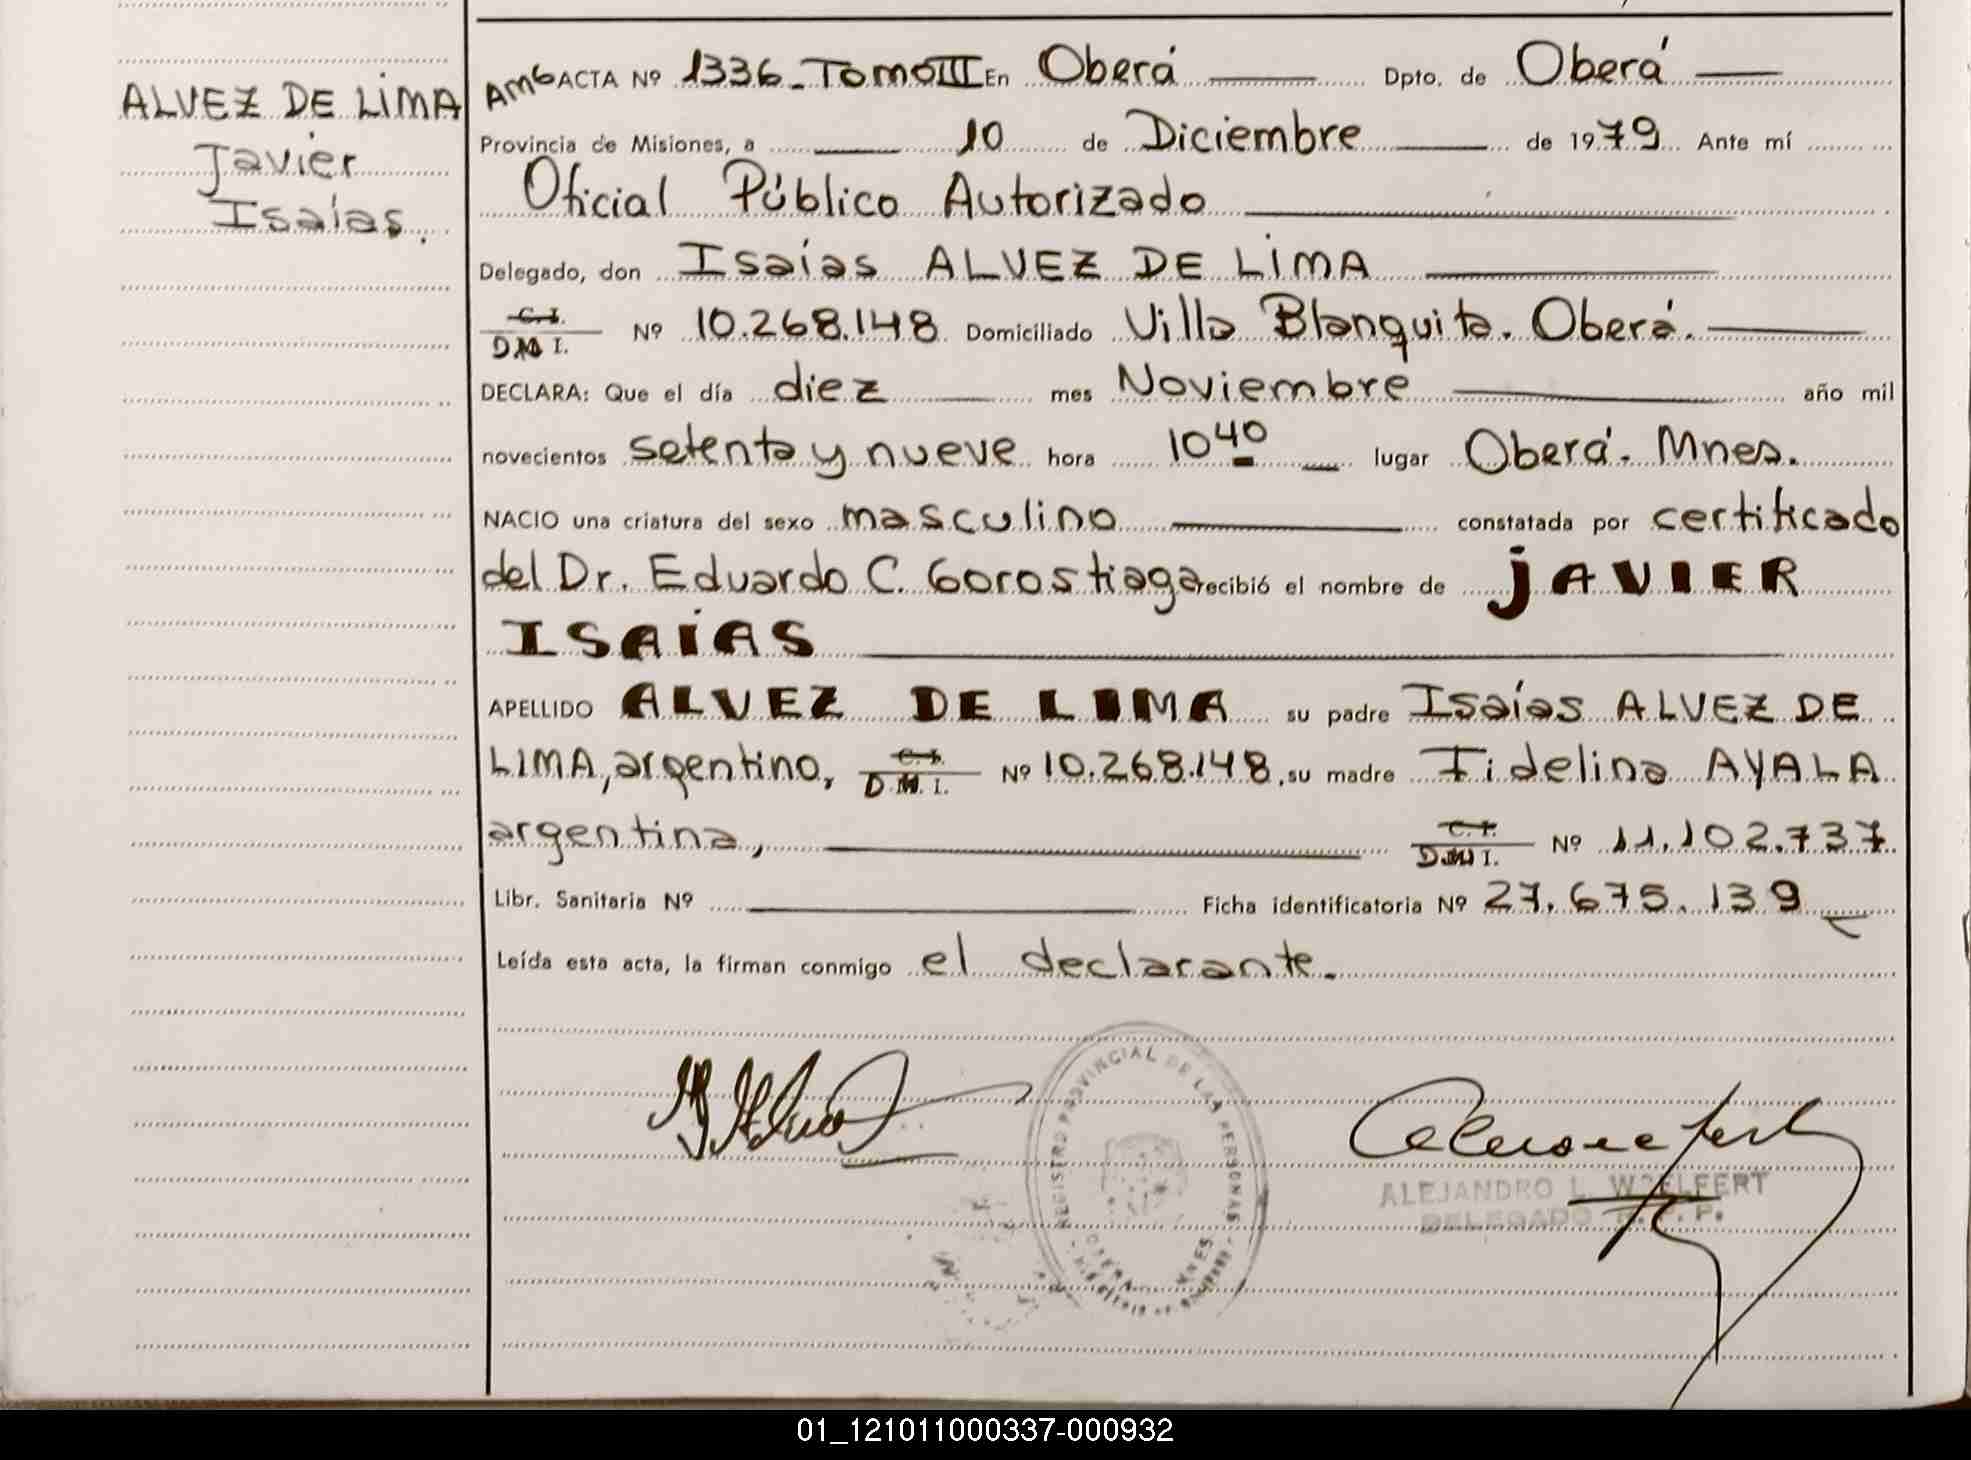 ALVEZ DE LIMA
Javier
Isaías.
AMG ACTA Nº 1336-Tomo III En Oberá Dpto. de Oberá
Provincia de Misiones, a 10 de Diciembre de 1979 Ante mí
Oficial Público Autorizado
Delegado, don Isaías ALVEZ DE LIMA
C.I. D.N.I. Nº 10.268.148 Domiciliado Villa Blanquita. Oberá.
DECLARA: Que el día diez mes Noviembre año mil
novecientos setenta y nueve hora 10 40 lugar Oberá. Mnes.
NACIO una criatura del sexo masculino constatada por certificado
del Dr. Eduardo C. Gorostiaga recibió el nombre de JAVIER
ISAÍAS
APELLIDO ALVEZ DE LIMA su padre Isaías ALVEZ DE
LIMA, argentino, C.I. D.N.I. Nº 10.268.148, su madre Fidelina AYALA
argentina, C.I. D.N.I. Nº 11.102.737
Libr. Sanitaria Nº Ficha identificatoria Nº 27.675.139
Leída esta acta, la firman conmigo el declarante.
REGISTRO PROVINCIAL DE LAS PERSONAS
OBERA MNES.
ALEJANDRO L. WOELFERT
DELEGADO R.P.P.
01_121011000337-000932